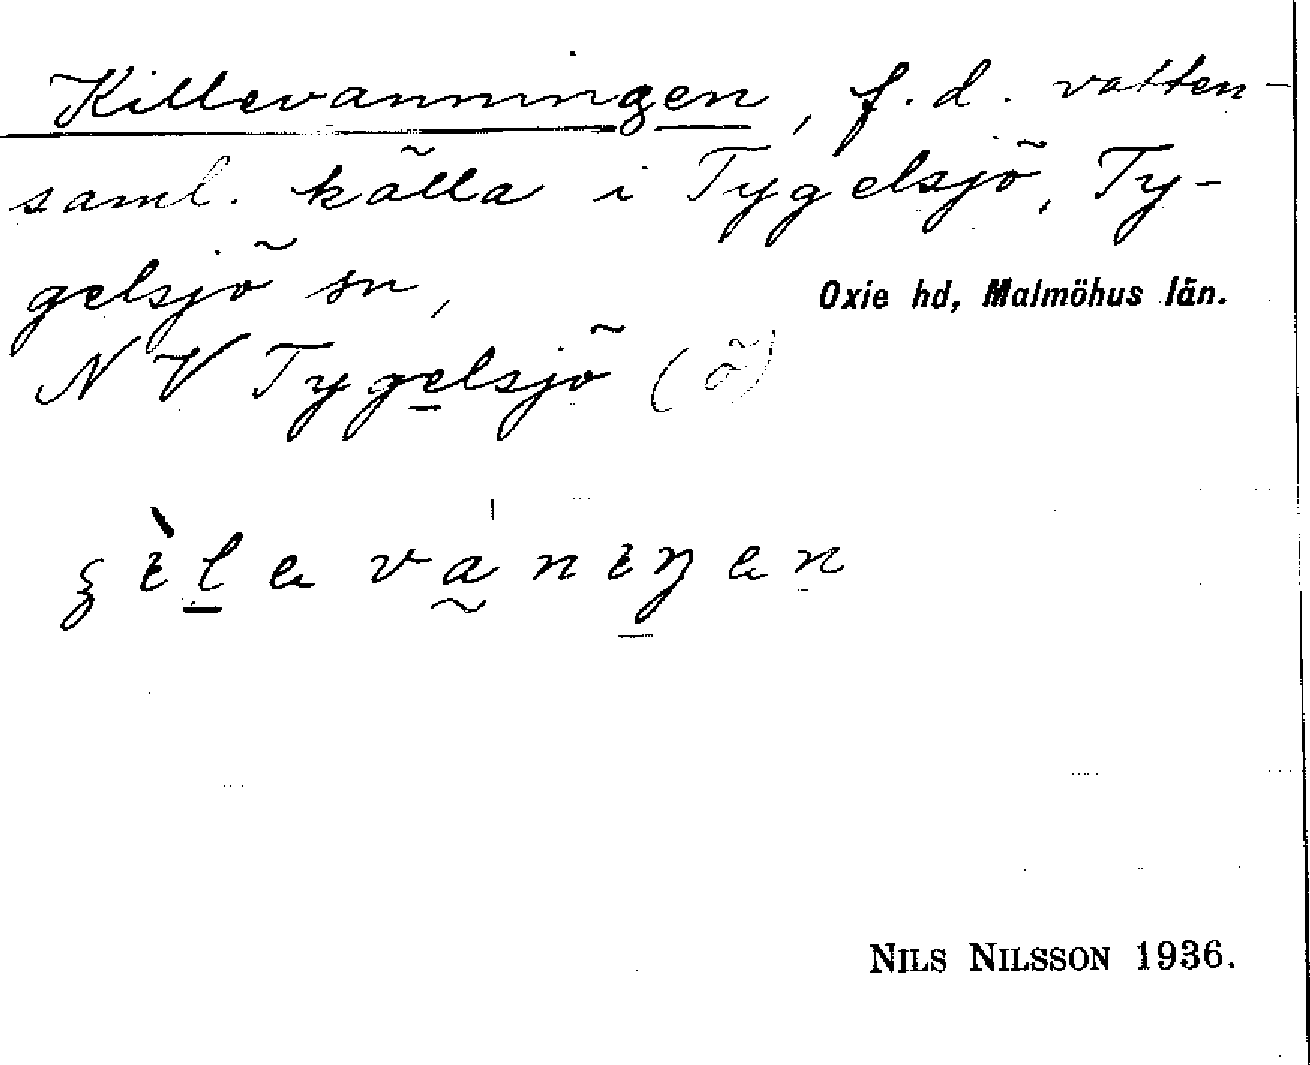 Killevanningen, f. d. vatten-
saml. källa i Tygelsjö, Ty-
gelsjö sn, Oxie hd, Malmöhus län.
N V Tygelsjö (ö)
NILS NILSSON 1936.